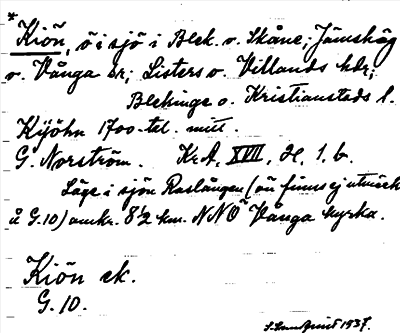 * Kiön, ö i sjö i Blek. o. Skåne; Jämshög
o. Vånga sr; Listers o. Villands hdr;
Blekinge o. Kristianstads l.
Kijöhn 1700-tal. mitt.
G. Norström. KrA, XVII, H, 1. b.
Läge i sjön Raslången (ön finns ej utmärkt
å G.10) omkr. 8½ km. NNÖ Vånga kyrka.
Kiön ek.
G. 10.
1937.